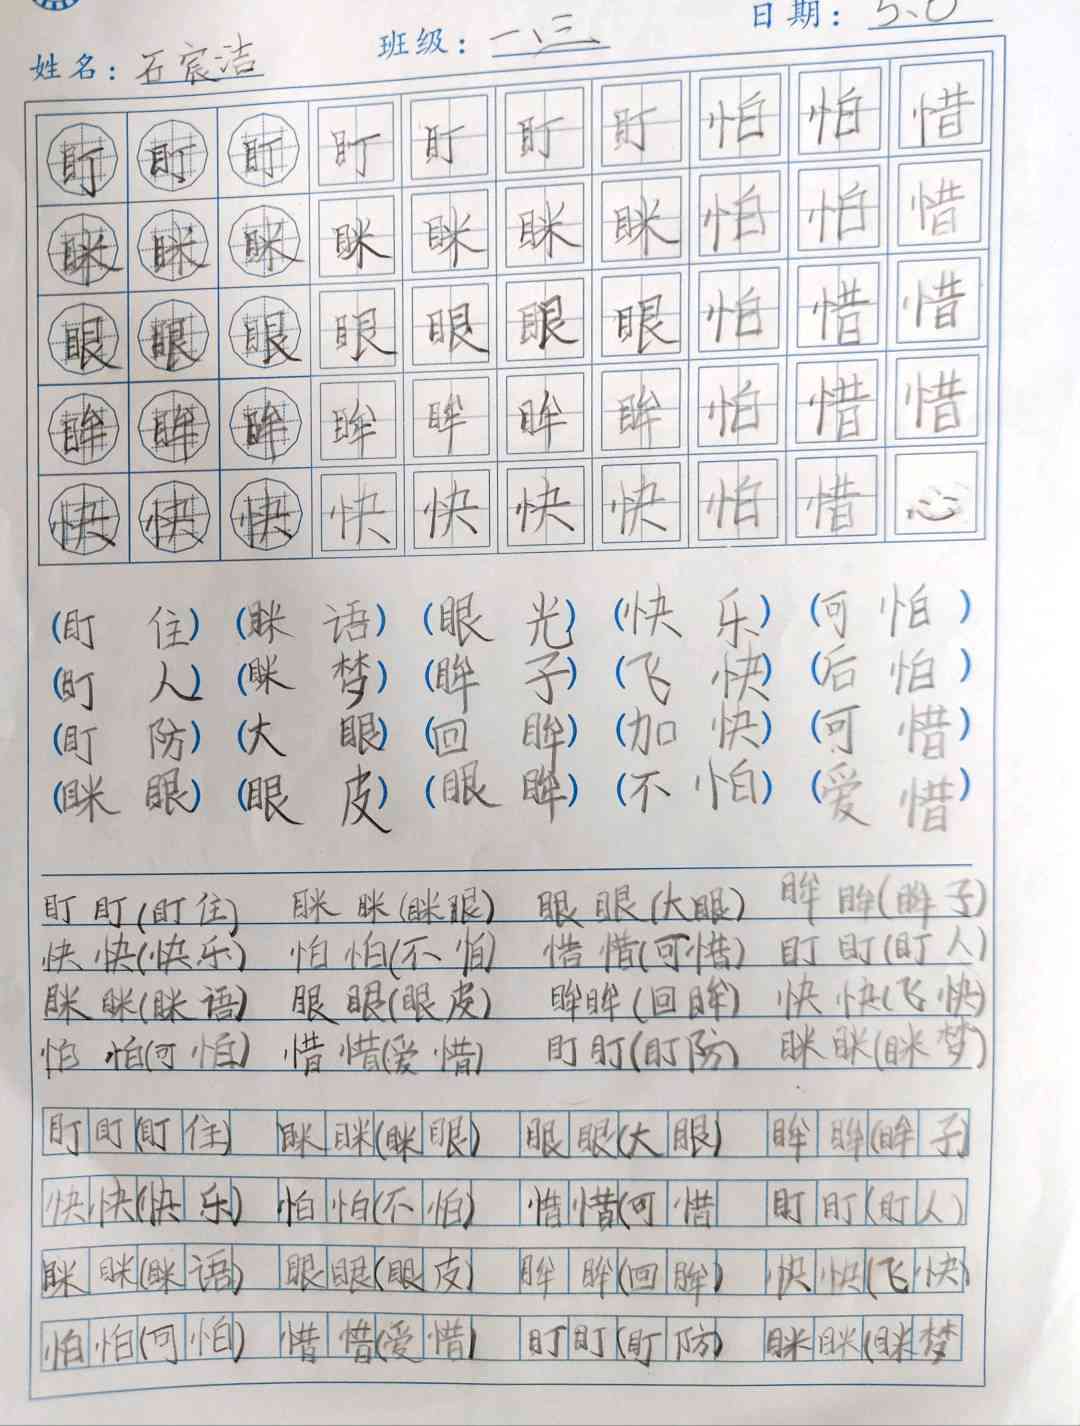 姓名：石宸洁 班级：一、三 日期：5.6
盯 盯 盯 盯 盯 盯 盯 怕 怕 惜
眯 眯 眯 眯 眯 眯 眯 怕 怕 惜
眼 眼 眼 眼 眼 眼 眼 怕 惜 惜
眸 眸 眸 眸 眸 眸 眸 怕 惜 惜
快 快 快 快 快 快 快 怕 惜
(盯 住) (眯 语) (眼 光) (快 乐) (可 怕)
(盯 人) (眯 梦) (眸 子) (飞 快) (后 怕)
(盯 防) (大 眼) (回 眸) (加 快) (可 惜)
(眯 眼) (眼 皮) (眼 眸) (不 怕) (爱 惜)
盯 盯(盯 住) 眯 眯(眯眼) 眼 眼(大眼) 眸 眸(眸子)
快 快(快乐) 怕 怕(不 怕) 惜 惜(可惜) 盯 盯(盯人)
眯 眯(眯 语) 眼 眼(眼 皮) 眸眸(回 眸) 快 快(飞 快)
怕 怕(可 怕) 惜 惜(爱 惜) 盯 盯(盯防) 眯 眯(眯梦)
盯 盯(盯 住) 眯 眯(眯 眼) 眼 眼(大 眼) 眸 眸(眸 子)
快 快(快 乐) 怕 怕(不 怕) 惜 惜(可 惜 盯 盯(盯 人)
眯 眯(眯 语) 眼 眼(眼 皮) 眸 眸(回 眸) 快 快(飞 快)
怕 怕(可 怕) 惜 惜(爱 惜) 盯 盯(盯 防) 眯 眯(眯 梦